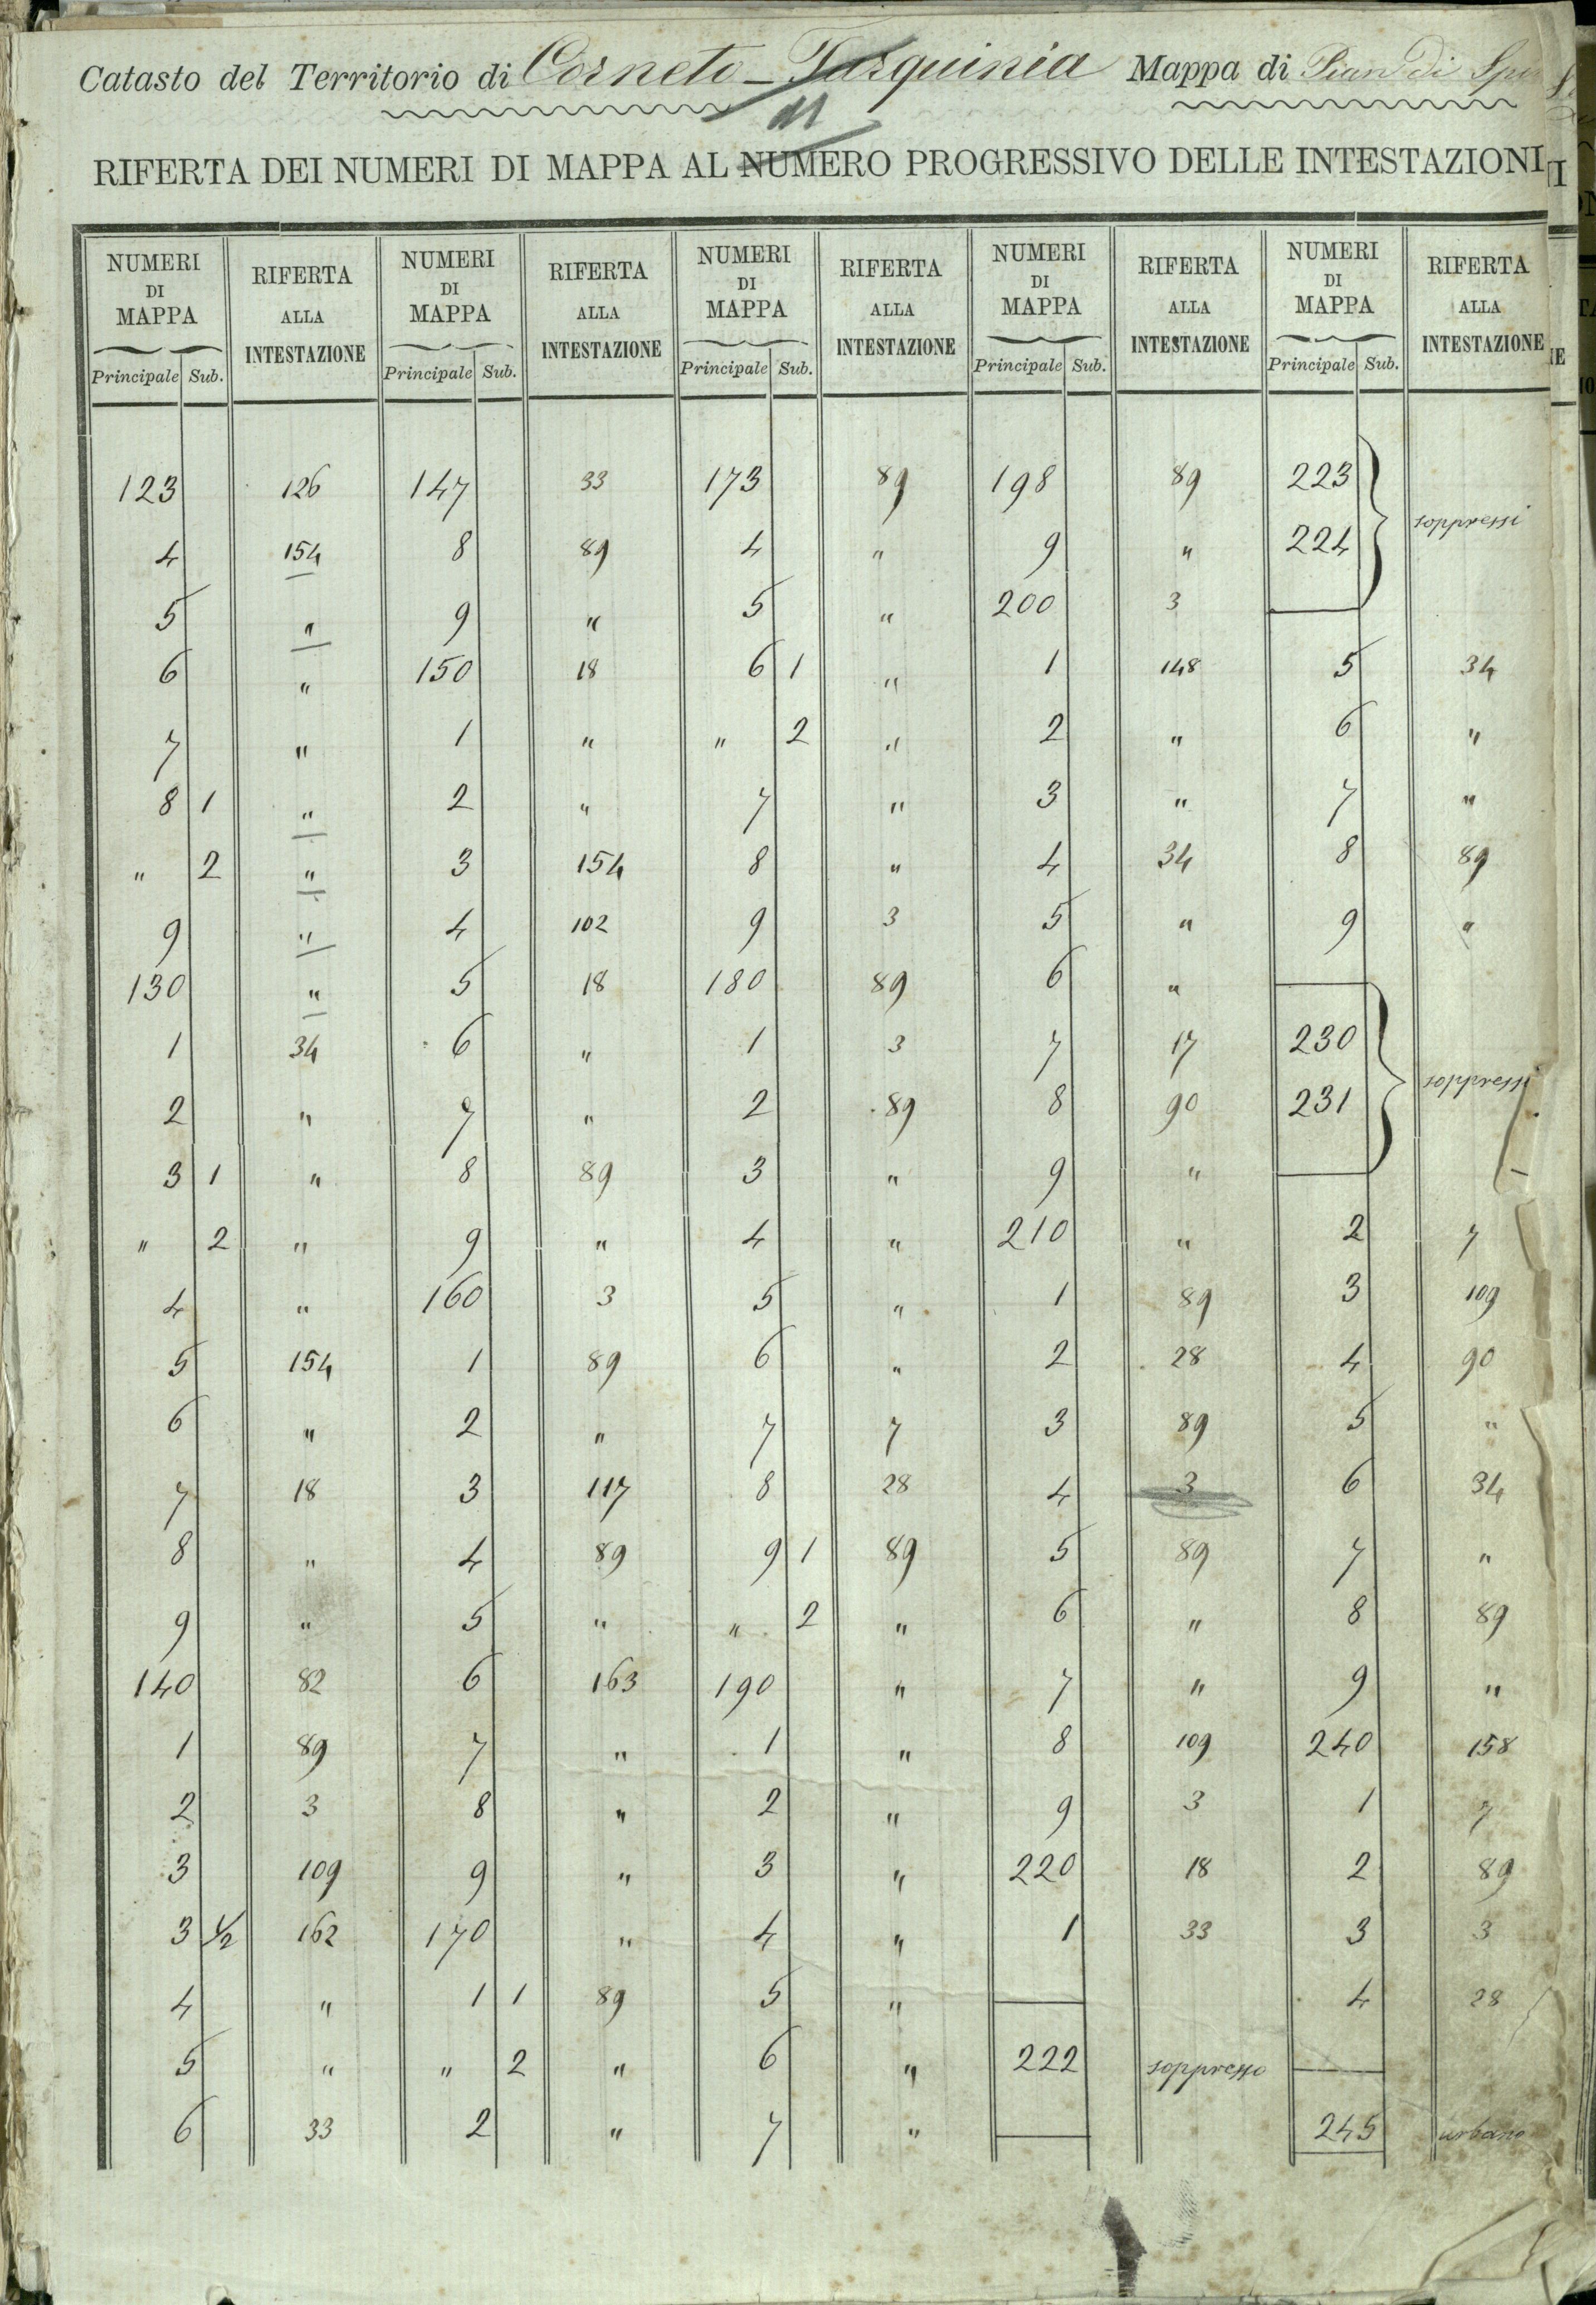 Catasto del Territorio di Corneto-Tarquinia Mappa di Pian di
11
RIFERTA DEI NUMERI DI MAPPA AL NUMERO PROGRESSIVO DELLE INTESTAZIONI
NUMERI DI MAPPA RIFERTA ALLA INTESTAZIONE NUMERI DI MAPPA RIFERTA ALLA INTESTAZIONE NUMERI DI MAPPA RIFERTA ALLA INTESTAZIONE NUMERI DI MAPPA RIFERTA ALLA INTESTAZIONE NUMERI DI MAPPA RIFERTA ALLA INTESTAZIONE
Principale Sub. Principale Sub. Principale Sub. Principale Sub. Principale Sub.
123 126 147 33 173 89 198 89 223 soppressi
4 154 8 89 4 " 9 " 224
5 " 9 " 5 " 200 3
6 " 150 18 6 1 " 1 148 5 34
7 " 1 " " 2 " 2 " 6 "
8 1 " 2 " 7 " 3 " 7 "
" 2 " 3 154 8 " 4 34 8 89
9 " 4 102 9 3 5 " 9 "
130 " 5 18 180 89 6 "
1 34 6 " 1 3 7 17 230 soppressi
2 " 7 " 2 89 8 90 231
3 1 " 8 89 3 " 9 "
" 2 " 9 " 4 " 210 " 2 7
4 " 160 3 5 " 1 89 3 109
5 154 1 89 6 " 2 28 4 90
6 " 2 " 7 7 3 89 5 "
7 18 3 117 8 28 4 3 6 34
8 " 4 89 9 1 89 5 89 7 "
9 " 5 " " 2 " 6 " 8 89
140 82 6 163 190 " 7 " 9 "
1 89 7 " 1 " 8 109 240 158
2 3 8 " 2 " 9 3 1 7
3 109 9 " 3 " 220 18 2 89
3 1/2 162 170 " 4 " 1 33 3 3
4 " 1 1 89 5 " 4 28
5 " " 2 " 6 " 222 soppresso
6 33 2 " 7 " 245 urbano